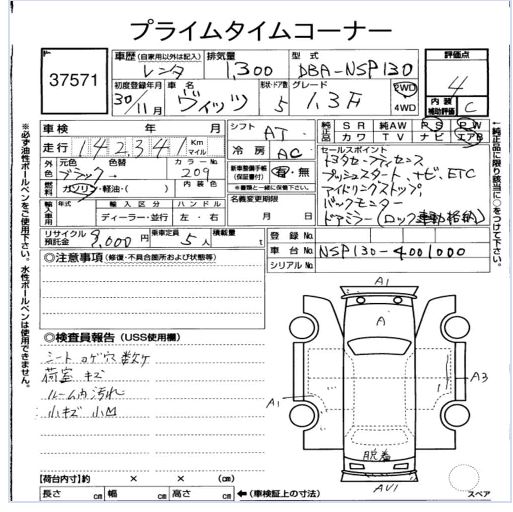 プライムタイムコーナー
37571
車歴 (自家用以外は記入) 排気量 型式 評価点
レンタ 1,300 DBA-NSP130 4
初度登録年月 車名 形状・ドア数 グレード 2WD 4WD
30年11月 ヴィッツ 5 1.3F
内装補助評価 C
車検 年 月 シフト AT
走行 142,341 Km マイル 冷房 AC
純正品 SR 純AW PS PW
カワ TV ナビ エアB
元色 色替 カラーNo.
外装 ブラック 209
燃料 ガソリン・軽油・( ) 内装色
新車整備手帳 (保証書付) 有・無
※書類と一緒に保管下さい。
セールスポイント
トヨタセーフティセンス
プッシュスタート、ナビ、ETC
アイドリングストップ
バックモニター
ドアミラー(ロック連動格納)
輸入車用 年式 輸入区分 ハンドル
ディーラー・並行 左・右
名義変更期限
月 日
リサイクル預託金 9,000円 乗車定員 5人 積載量 t
登録No.
車台No. NSP130-4001000
シリアルNo.
◎注意事項 (修復・不具合箇所および状態等)
◎検査員報告 (USS使用欄)
シート コゲ穴 数ヶ
荷室 キズ
ルーム内汚れ
小キズ 小凹
A1
A
A1
A3
脱着
AU1
スペア
【荷台内寸】約 × × (cm)
長さ cm 幅 cm 高さ cm ←(車検証上の寸法)
※必ず油性ボールペンをご使用下さい。水性ボールペンは使用できません。
←純正品に限り該当に○をつけて下さい。